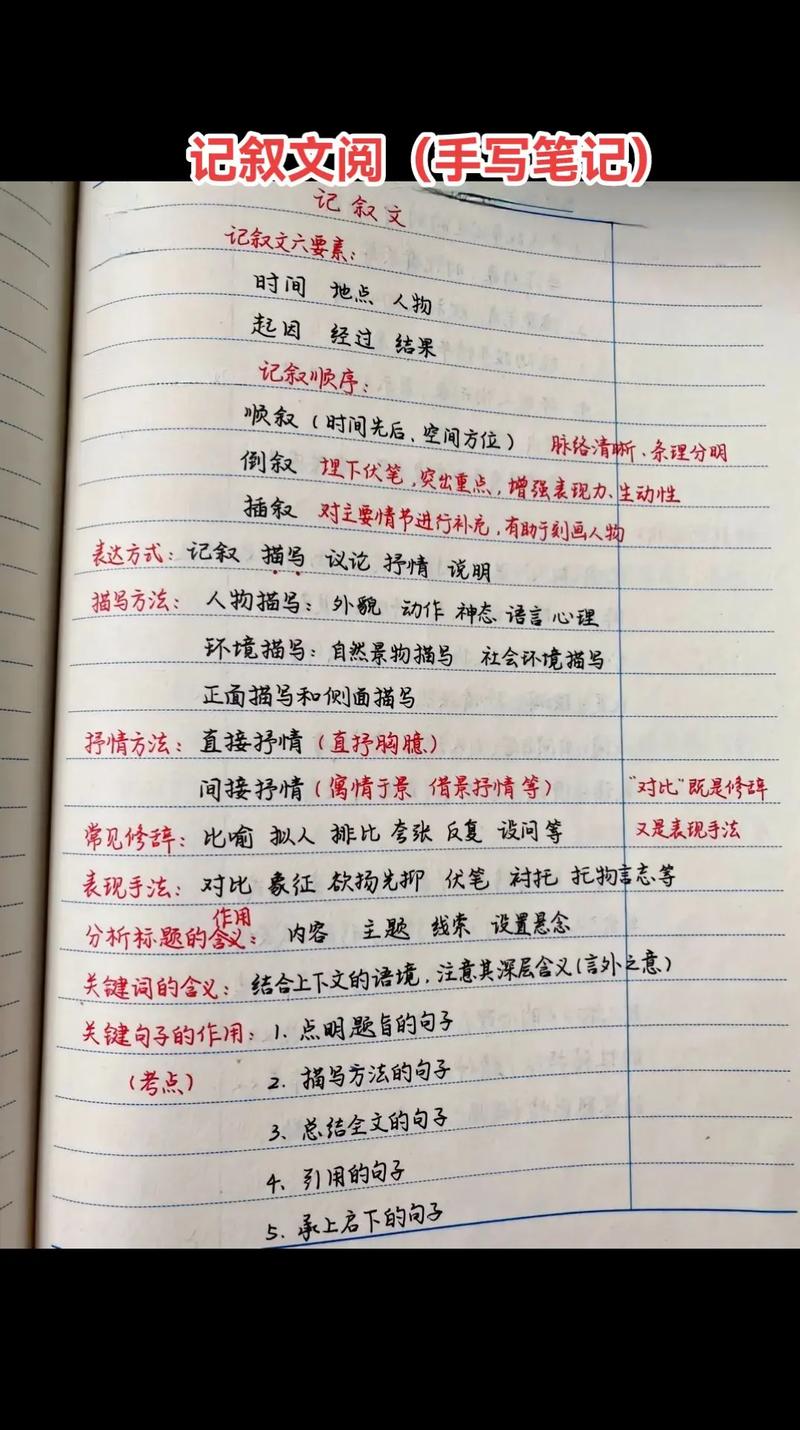 记叙文阅（手写笔记）
记叙文
记叙文六要素：
时间 地点 人物
起因 经过 结果
记叙顺序：
顺叙（时间先后、空间方位） 脉络清晰、条理分明
倒叙 埋下伏笔，突出重点，增强表现力、生动性
插叙 对主要情节进行补充，有助于刻画人物
表达方式：记叙 描写 议论 抒情 说明
描写方法：人物描写：外貌 动作 神态 语言 心理
环境描写：自然景物描写 社会环境描写
正面描写和侧面描写
抒情方法：直接抒情（直抒胸臆）
间接抒情（寓情于景 借景抒情 等） “对比”既是修辞
常见修辞：比喻 拟人 排比 夸张 反复 设问 等 又是表现手法
表现手法：对比 象征 欲扬先抑 伏笔 衬托 托物言志等
作用
分析标题的含义：内容 主题 线索 设置悬念
关键词的含义：结合上下文的语境，注意其深层含义（言外之意）
关键句子的作用：1. 点明题旨的句子
（考点） 2. 描写方法的句子
3、总结全文的句子
4、引用的句子
5. 承上启下的句子